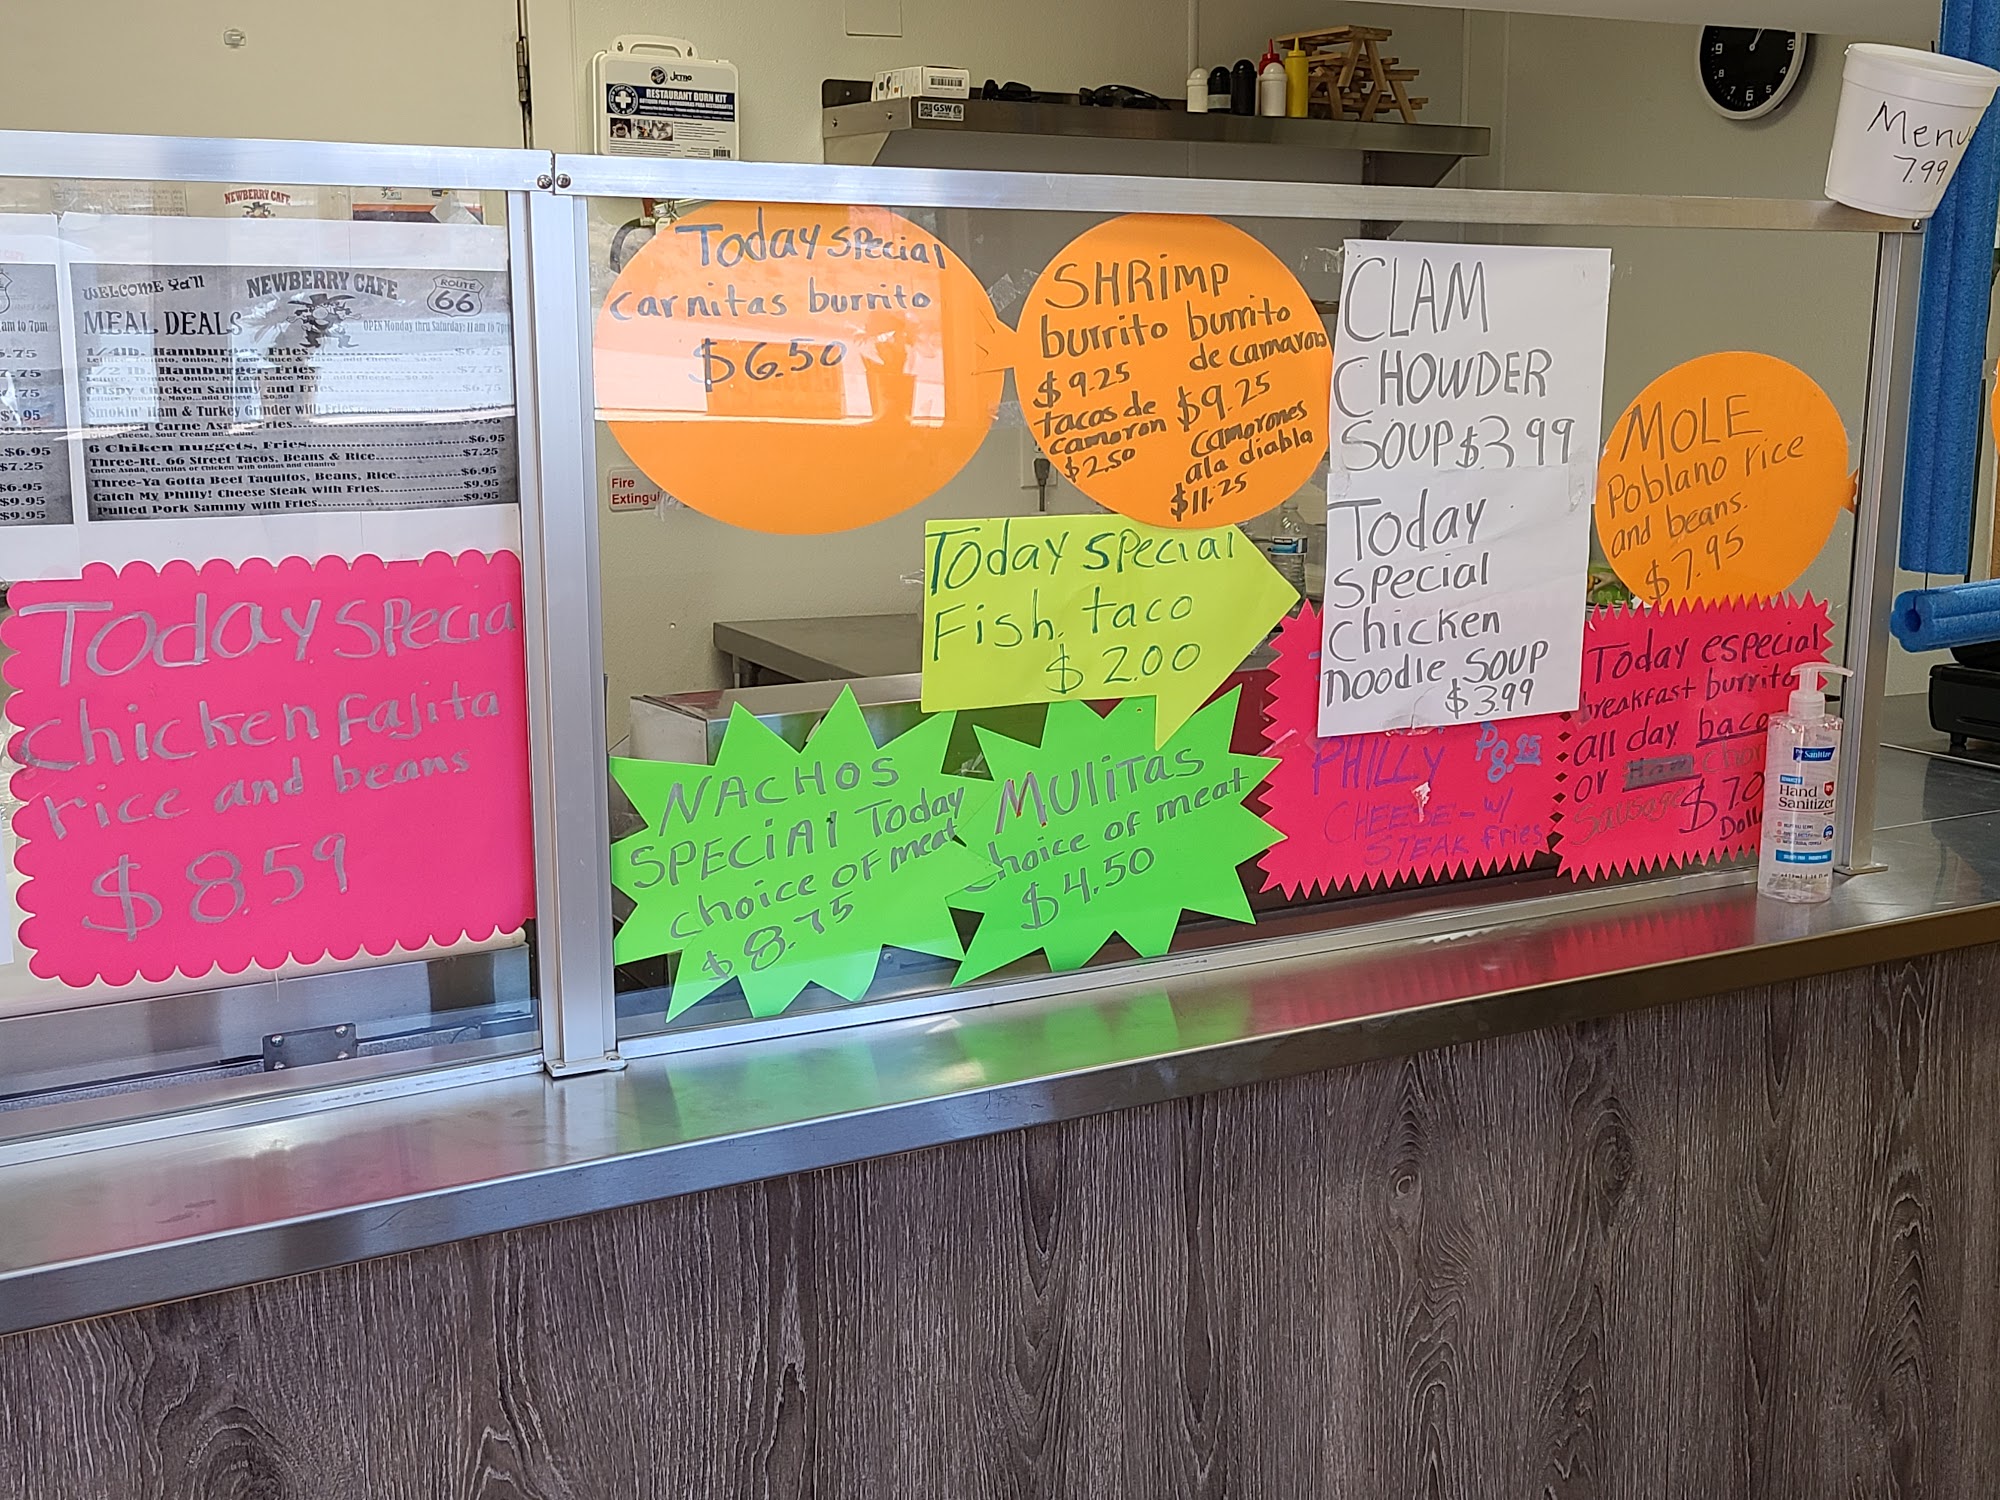 JETRO
RESTAURANT BURN KIT
GSW
9
3
8
7
6
5
Menu
7.99
NEWBERRY CAFE
WELCOME Ya'll
NEWBERRY CAFE
ROUTE
66
MEAL DEALS
OPEN Monday thru Saturday: 11 am to 7pm
1/4lb. Hamburger, Fries $6.75
1/2 lb. Hamburger, Fries $7.75
Crispy Chicken Sammy and Fries $6.75
Lettuce, Tomato, Mayo...add Cheese...$0.50
Smokin' Ham & Turkey Grinder with Fries
Carne Asada Fries $9.95
6 Chiken nuggets, Fries $6.95
Three-Rt. 66 Street Tacos, Beans & Rice $7.25
Carne Asada, Carnitas or Chicken with onions and cilantro
Three-Ya Gotta Beef Taquitos, Beans, Rice $6.95
Catch My Philly! Cheese Steak with Fries $9.95
Pulled Pork Sammy with Fries $9.95
am to 7pm
5.75
7.75
$7.95
$6.95
$7.25
$6.95
$9.95
$9.95
Today special
chicken fajita
rice and beans
$8.59
Today special
carnitas burrito
$6.50
Fire
SHRimp
burrito
$9.25
tacos de
camaron
$2.50
burrito
de camaron
$9.25
camarones
ala diabla
$11.25
CLAM
CHOWDER
SOUP $3.99
Today
special
chicken
noodle soup
$3.99
MOLE
Poblano rice
and beans.
$7.95
Today special
Fish taco
$2.00
NACHOS
SPECIAl Today
choice of meat
$8.75
MULITAS
choice of meat
$4.50
PHILLY
CHEESE-W/
STEAK Fries
Today especial
breakfast burrito
all day
or
Sausage
Hand
Sanitizer